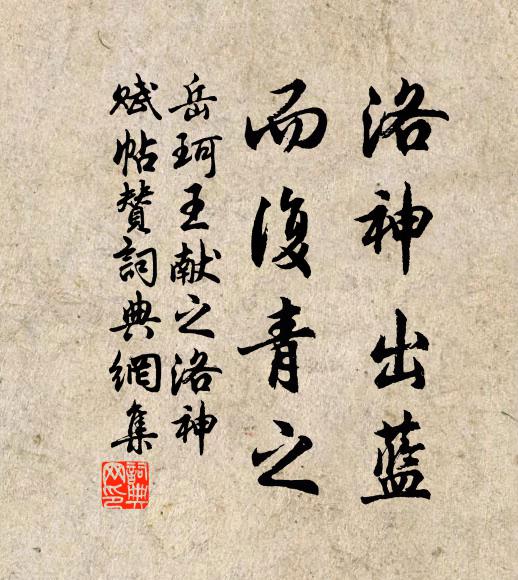 洛神出藍
而復青之
岳珂王献之洛神
赋帖赞詞典網集
詞典网印